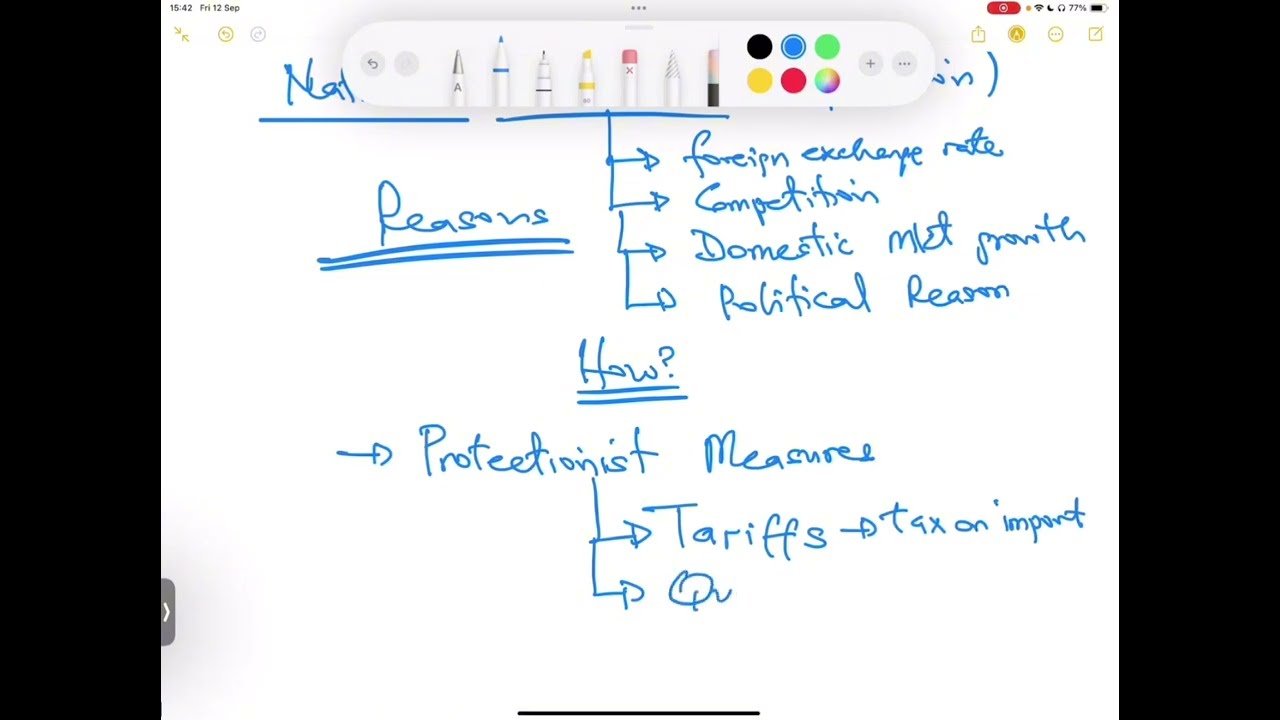 15:42 Fri 12 Sep 77%
Nat in)
foreign exchange rate
Competition
Reasons
Domestic Mkt growth
Political Reason
How?
→ Protectionist Measures
Tariffs → tax on import
Qu